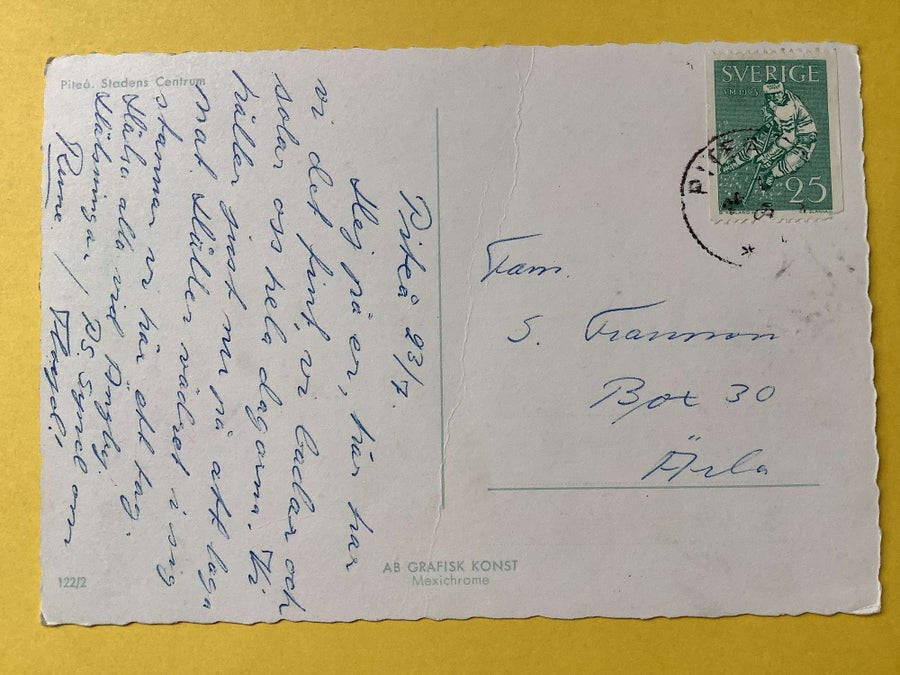 Piteå. Stadens Centrum
SVERIGE
VM 1963
25
PITEÅ
Piteå 23/7.
Hej på er, här har
vi det fint, vi badar och
solar oss hela dagarna. Vi
håller just nu på att laga
mat. Håller vädret i sig
stannar vi här ett tag.
Hälsa alla vid Ängby.
Hälsningar / PS Synd om
Rune. /
Fam.
S. Fransson
Box 30
Ärla
AB GRAFISK KONST
Mexichrome
122/2